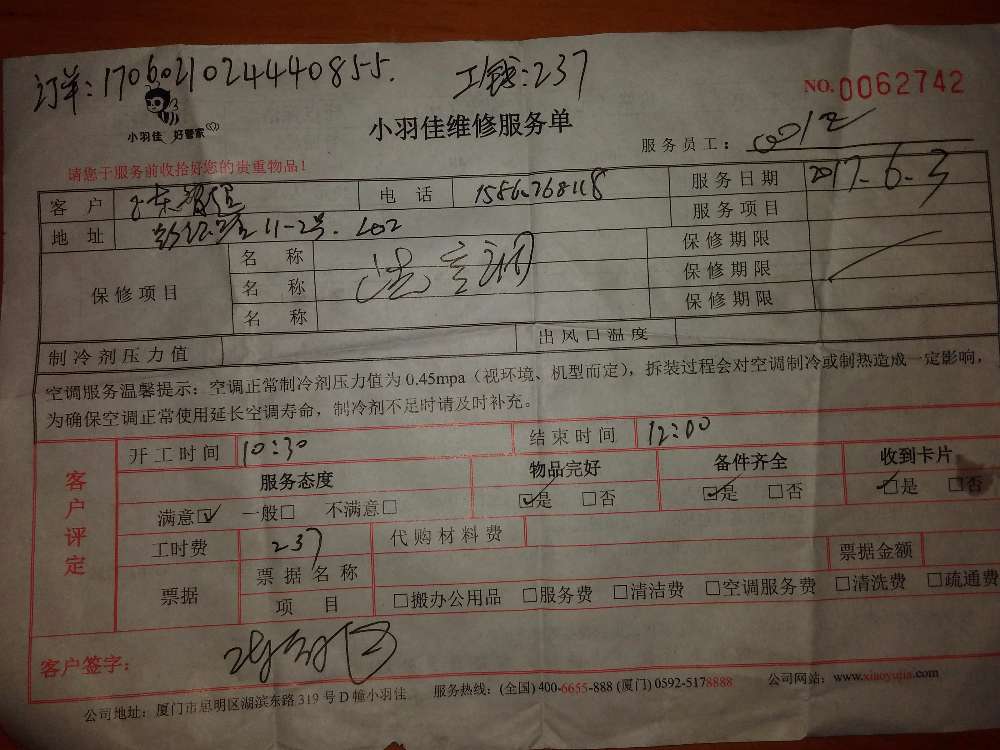 订单:1706021024440855. 工钱:237
NO.0062742
小羽佳 好管家
小羽佳维修服务单
服务员工:
请您于服务前收拾好您的贵重物品!
客户 电话 服务日期 2017.6.3
地址 11-2号.202 服务项目
保修项目 名称 保修期限
名称 保修期限
名称 保修期限
制冷剂压力值 出风口温度
空调服务温馨提示:空调正常制冷剂压力值为0.45mpa(视环境、机型而定),拆装过程会对空调制冷或制热造成一定影响,
为确保空调正常使用延长空调寿命,制冷剂不足时请及时补充。
客户评定
开工时间 10:30 结束时间 12:00
服务态度 物品完好 备件齐全 收到卡片
满意☑ 一般□ 不满意□ ☑是 □否 ☑是 □否 ☑是 □否
工时费 237 代购材料费
票据 票据名称 票据金额
项目 □搬办公用品 □服务费 □清洁费 □空调服务费 □清洗费 □疏通费
客户签字:
公司地址:厦门市思明区湖滨东路319号D幢小羽佳 服务热线:(全国)400-6655-888 (厦门)0592-5178888 公司网站:www.xiaoyujia.com